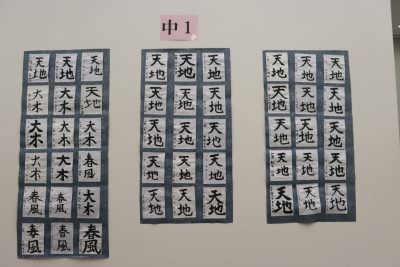 中1
天地 天地 天地
大木 大木 天地
大木 大木 大木
大木 大木 春風
春風 春風 大木
春風 春風 春風
天地 天地 天地
天地 天地 天地
天地 天地 天地
天地 天地 天地
天地 天地 天地
天地 天地 天地
天地 天地 天地
天地 天地 天地
天地 天地 天地
天地 天地 天地